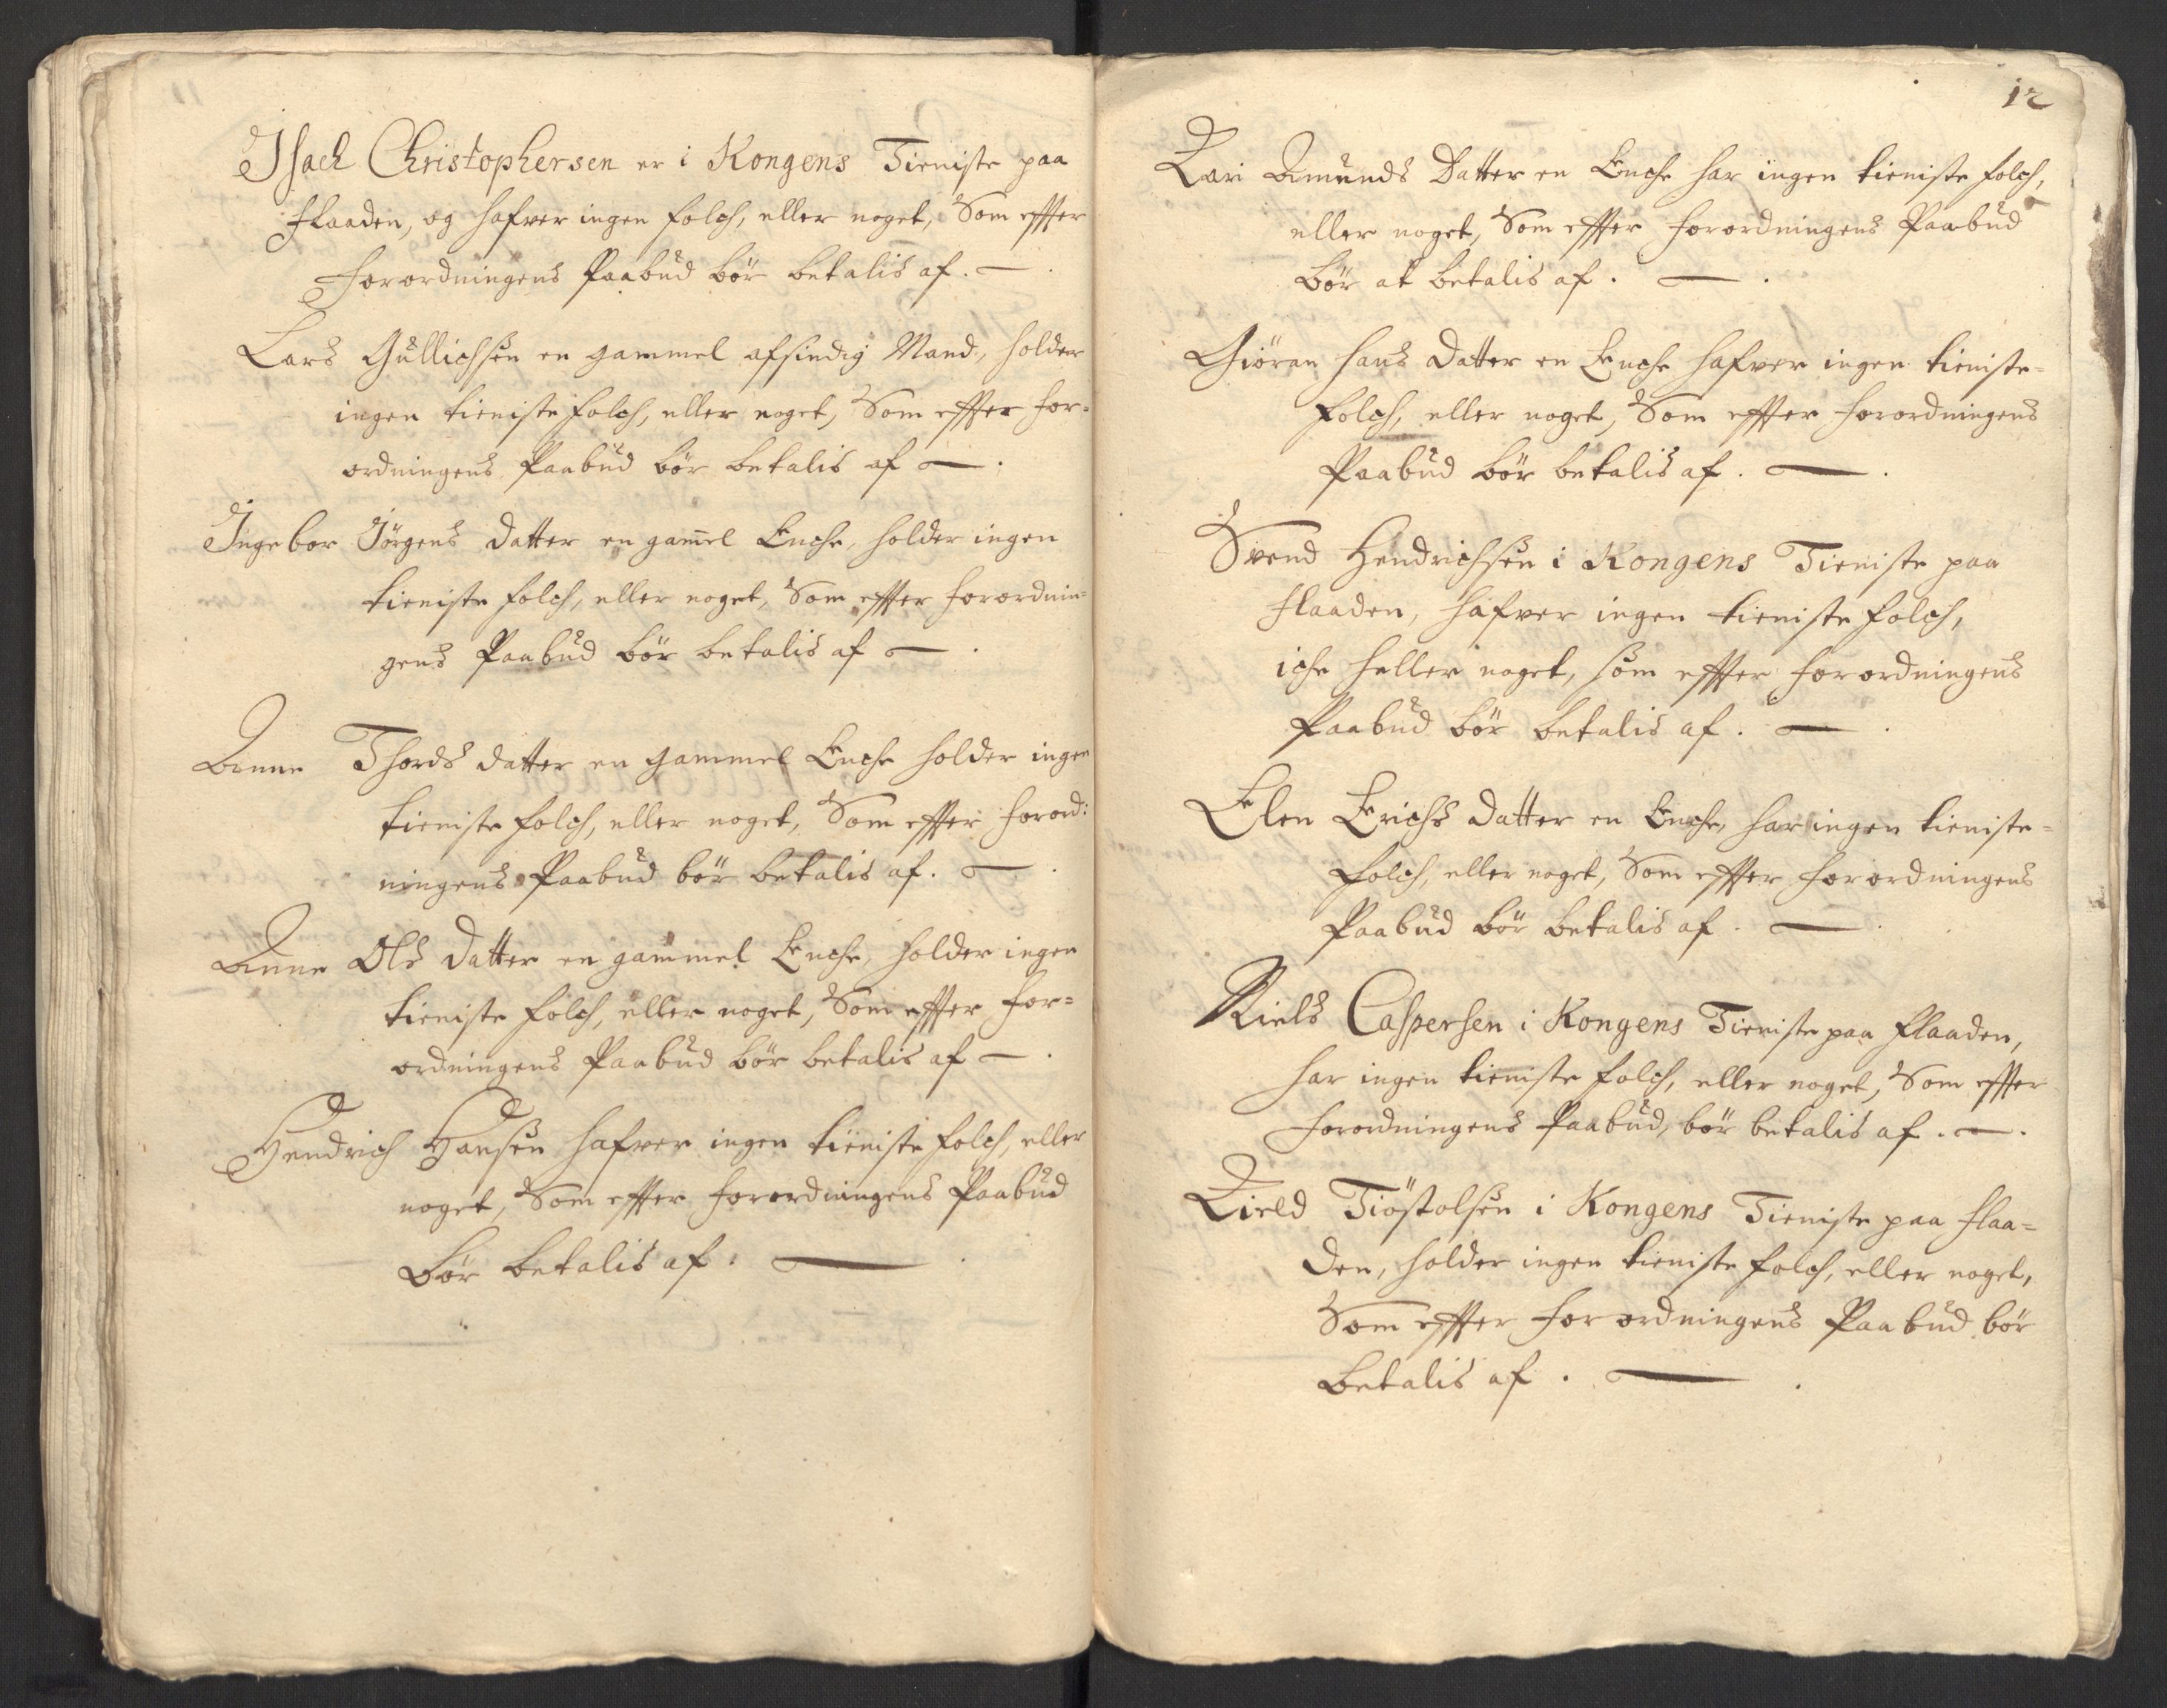 Isach Christophersen er i Kongens Tieniste paa
Flaaden, og hafver ingen folch, eller noget, Som effter
forordningens Paabud bør betalis af. —
Lars Gullichsen en gammel afsindig Mand, holder
ingen tieniste folch, eller noget, Som effter for=
ordningens Paabud bør betalis af — .
Ingebor Jørgens datter en gam̄el Enche, holder ingen
tieniste folch, eller noget, Som effter forordnin=
gens Paabud bør betalis af — .
Anne Thords datter en gammel Enche holder ingen
tieniste folch, eller noget, Som effter forord:
ningens Paabud bør betalis af. — .
Anne Ols datter en gammel Enche, holder ingen
tieniste folch, eller noget, Som effter for=
ordningens Paabud bør betalis af — .
Hendrich Hansen hafver ingen tieniste folch, eller
noget, Som effter forordningens Paabud
bør betalis af. — .
12
Kari Amunds Datter en Enche har ingen tieniste folch,
eller noget, Som effter forordningens Paabud
bør at betalis af. — .
Giøran Hans datter en Enche hafver ingen tieniste=
folch, eller noget, Som effter forordningens
Paabud bør betalis af. — .
Svend Hendrichsen i Kongens Tieniste paa
flaaden, hafver ingen tieniste folch,
iche heller noget, som effter forordningens
Paabud bør betalis af. — .
Elen Erichs datter en Enche, har ingen tieniste=
folch, eller noget, Som effter forordningens
Paabud bør betalis af. — .
Niels Caspersen i Kongens Tieniste paa flaaden,
har ingen tieniste folch, eller noget, Som effter
forordningens Paabud, bør betalis af. — .
Kield Tiøstolsen i Kongens Tieniste paa flaa=
den, holder ingen tieniste folch, eller noget,
Som effter forordningens Paabud bør
betalis af. — .